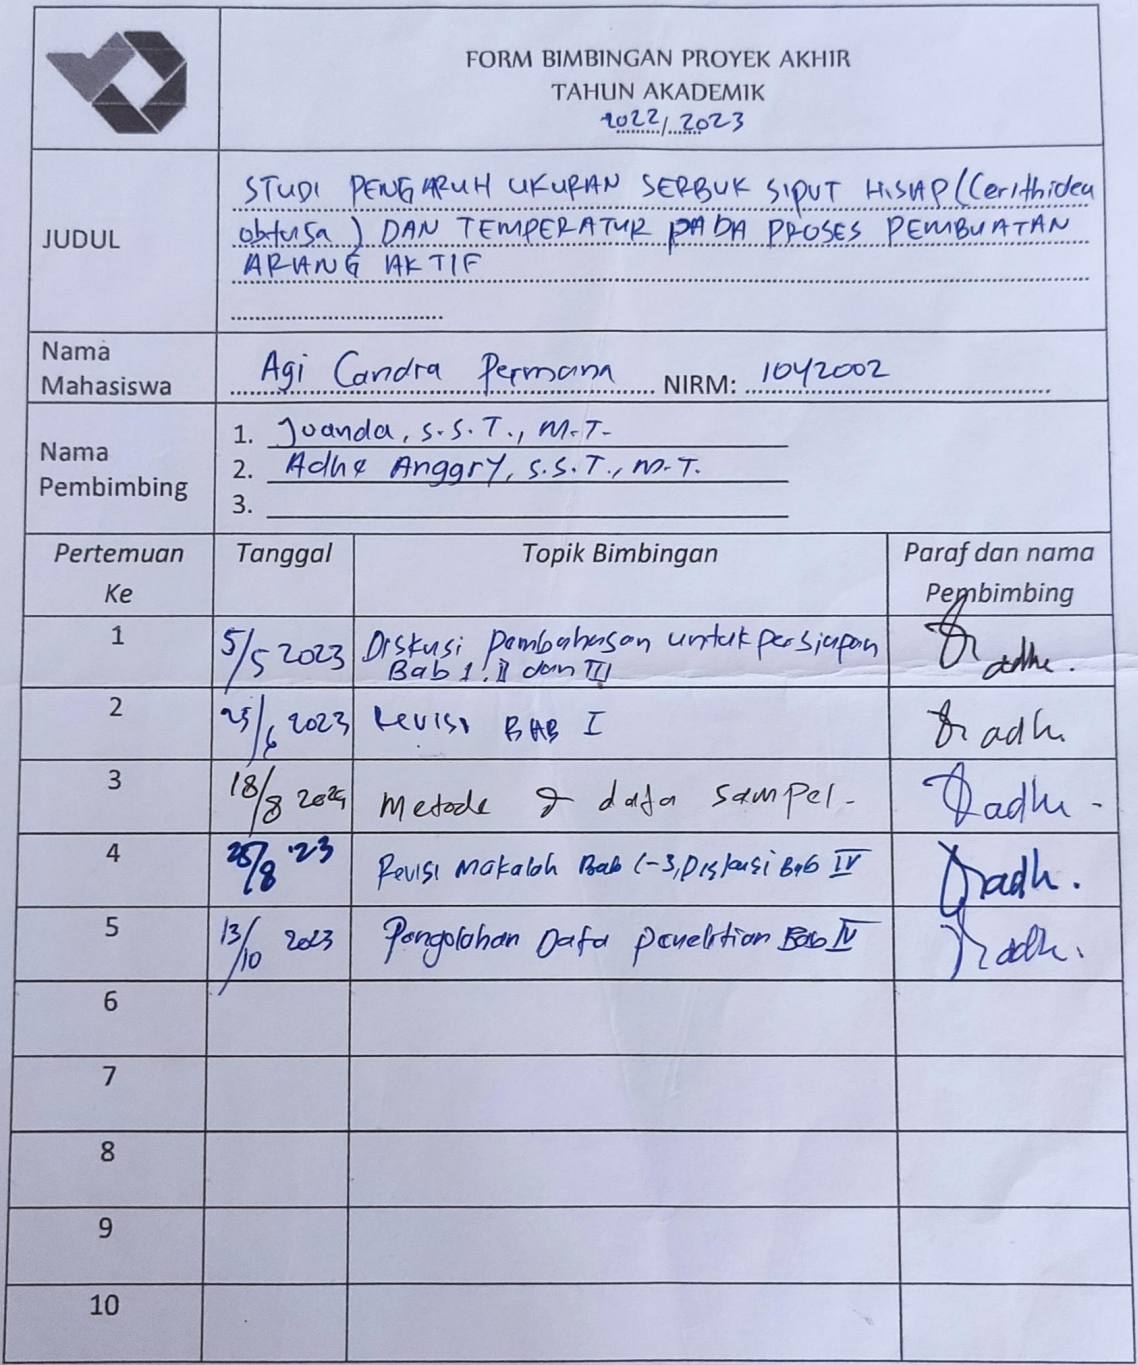 FORM BIMBINGAN PROYEK AKHIR
TAHUN AKADEMIK
2022/2023
JUDUL
STUDI PENGARUH UKURAN SERBUK SIPUT HISAP (Cerithidea
obtusa) DAN TEMPERATUR PADA PROSES PEMBUATAN
ARANG AKTIF
Nama
Mahasiswa
Agi Candra Permana NIRM: 1042002
Nama
Pembimbing
1. Juanda, S.S.T., M.T.
2. Adhe Anggry, S.S.T., M.T.
3.
Pertemuan
Ke
Tanggal
Topik Bimbingan
Paraf dan nama
Pembimbing
1 5/5 2023 Diskusi pembahasan untuk persiapan
Bab 1, II dan III
adhe.
2 25/6 2023 Revisi BAB I adh.
3 18/8 Metode & data sampel. adhe
4 25/8 '23 Revisi Makalah Bab 1-3, Diskusi Bab IV adh.
5 13/10 2023 Pengolahan Data penelitian Bab IV adh.
6
7
8
9
10